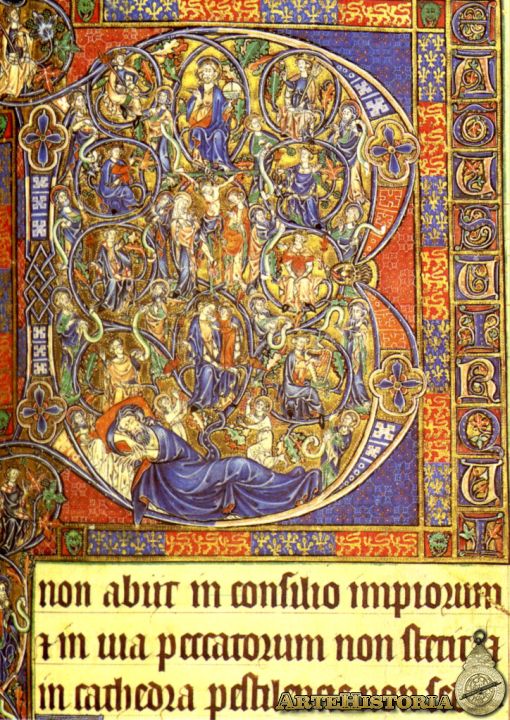 B
EATUS UIR QUI
non abiit in consilio impiorum
⁊ in uia peccatorum non stetit ⁊
in cathedra
ARTEHISTORIA